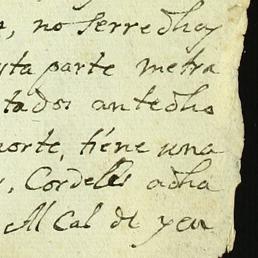 , no serred hoy
parte metra
tados antedho
norte, tiene una
, Cordeles adha
Al Cal de